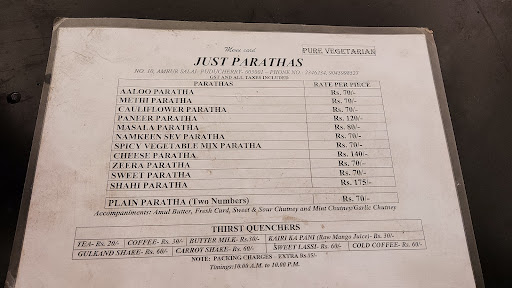 Menu card
PURE VEGETARIAN
JUST PARATHAS
GST AND ALL TAXES INCLUDED
PARATHAS RATE PER PIECE
AALOO PARATHA Rs. 70/-
METHI PARATHA Rs. 70/-
CAULIFLOWER PARATHA Rs. 70/-
PANEER PARATHA Rs. 120/-
MASALA PARATHA Rs. 80/-
NAMKEEN SEV PARATHA Rs. 70/-
SPICY VEGETABLE MIX PARATHA Rs. 70/-
CHEESE PARATHA Rs. 140/-
ZEERA PARATHA Rs. 70/-
SWEET PARATHA Rs. 70/-
SHAHI PARATHA Rs. 175/-
PLAIN PARATHA (Two Numbers) Rs. 70/-
Accompaniments: Amul Butter, Fresh Curd, Sweet & Sour Chutney and Mint Chutney/Garlic Chutney
THIRST QUENCHERS
TEA- Rs. 20/- COFFEE- Rs. 30/- BUTTER MILK- Rs. 30/- KAIRI KA PANI (Raw Mango Juice)- Rs. 30/-
GULKAND SHAKE- Rs. 60/- CARROT SHAKE- Rs. 60/- SWEET LASSI- Rs. 60/- COLD COFFEE- Rs. 60/-
NOTE: PACKING CHARGES - EXTRA Rs.
Timings:10.00 A.M. to 10.00 P.M.